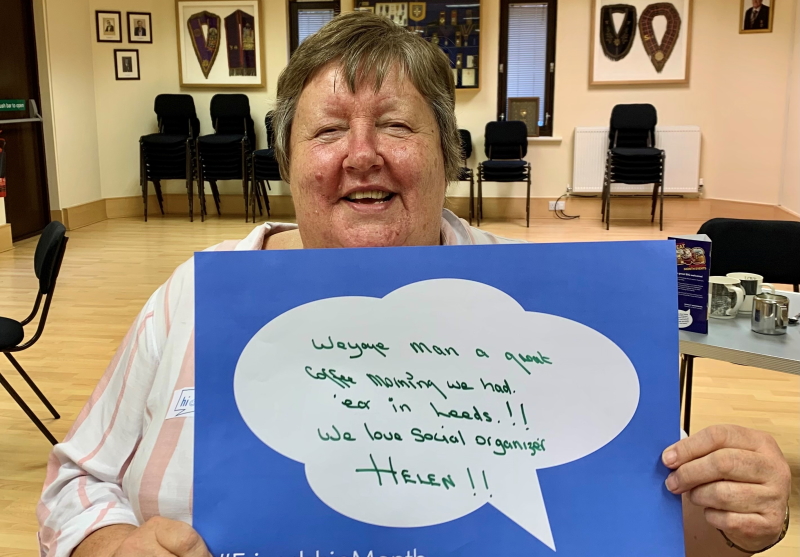 Weyaye man a great
Coffee Morning we had.
'ex in Leeds.!!
We love Social organizer
HELEN!!
#Friendship Month